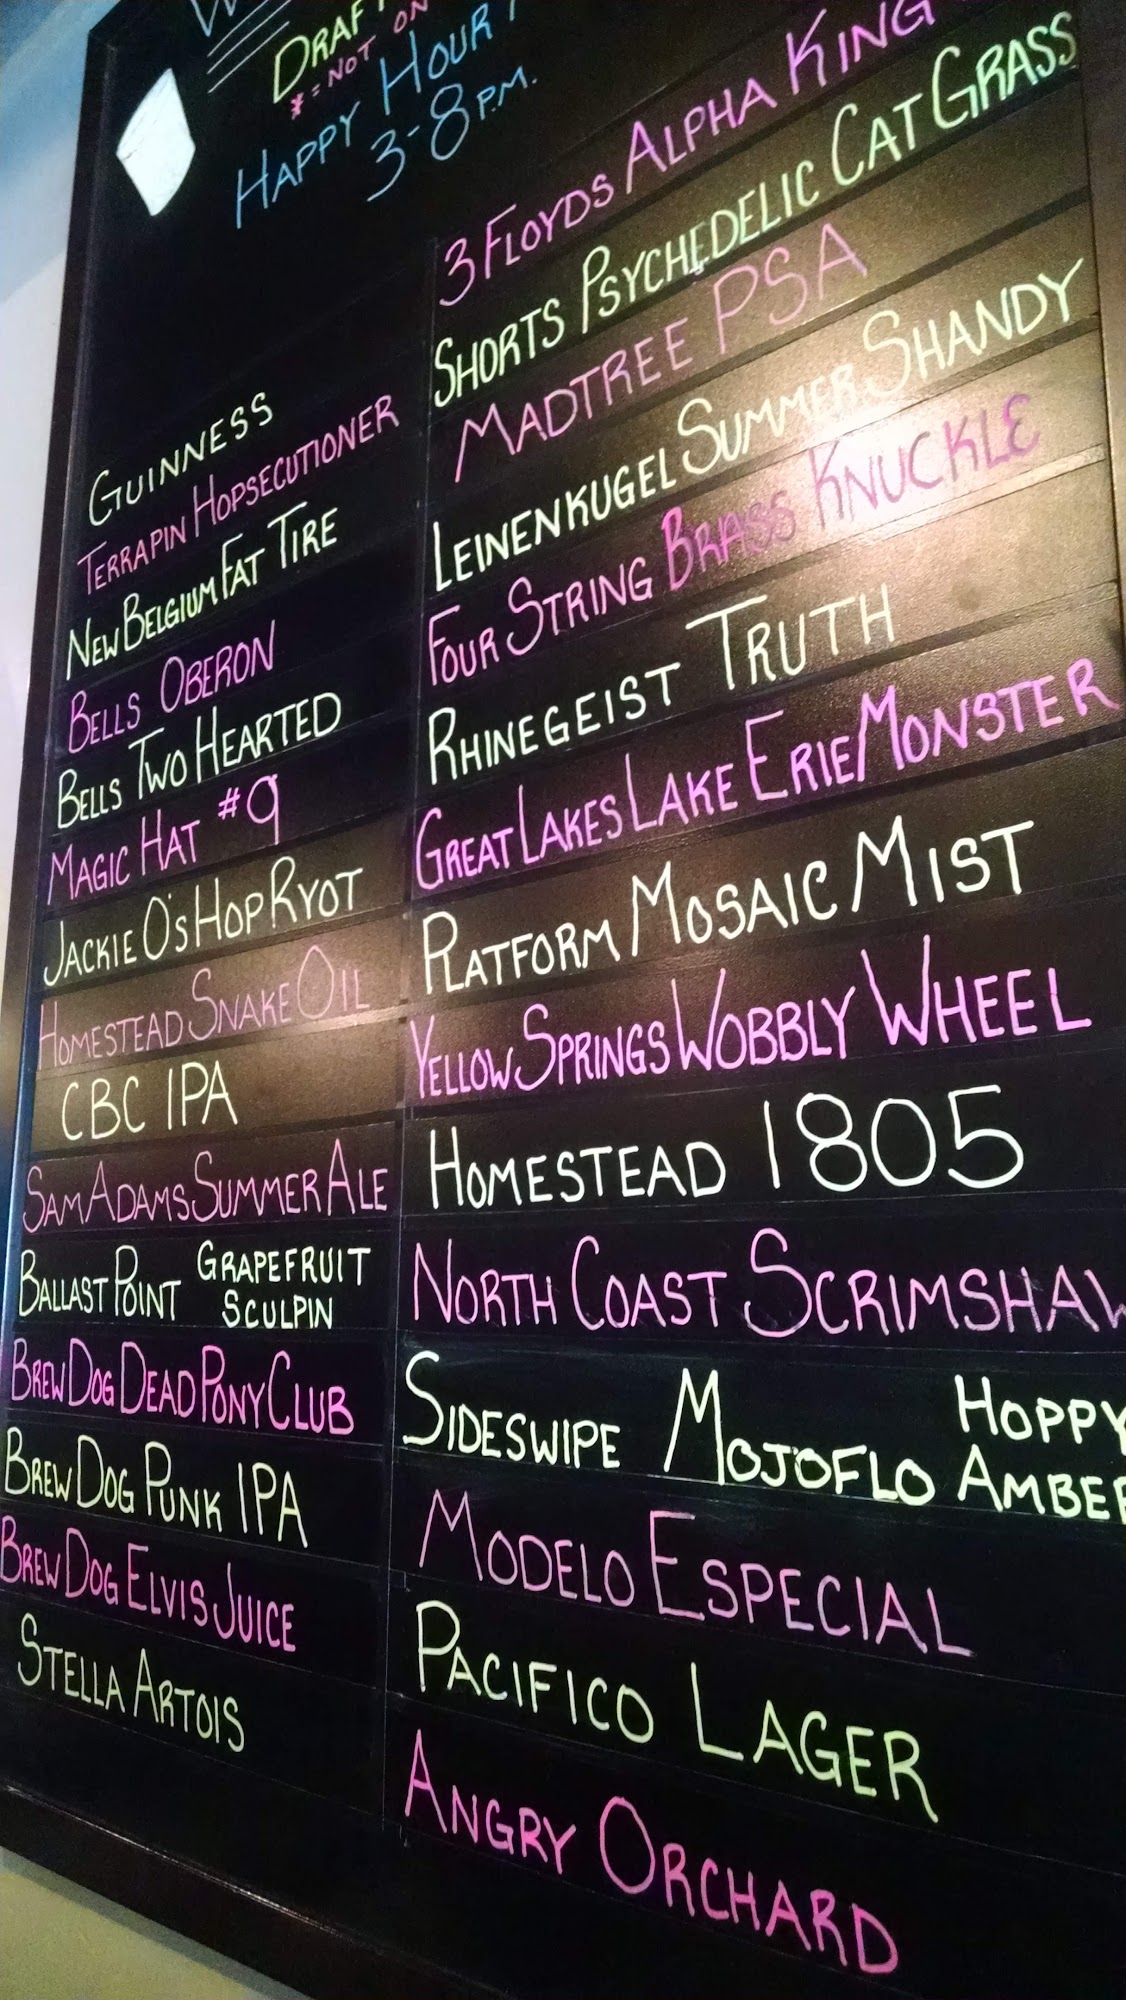 DRAF
*=NOT ON
HAPPY HOUR
3-8 P.M.
GUINNESS
TERRAPIN HOPSECUTIONER
NEW BELGIUM FAT TIRE
BELLS OBERON
BELLS TWO HEARTED
MAGIC HAT #9
JACKIE O'S HOP RYOT
HOMESTEAD SNAKE OIL
CBC IPA
SAM ADAMS SUMMER ALE
BALLAST POINT GRAPEFRUIT
SCULPIN
BREW DOG DEAD PONY CLUB
BREW DOG PUNK IPA
BREW DOG ELVIS JUICE
STELLA ARTOIS
3 FLOYDS ALPHA KING
SHORTS PSYCHEDELIC CAT GRASS
MADTREE PSA
LEINENKUGEL SUMMER SHANDY
FOUR STRING BRASS KNUCKLE
RHINEGEIST TRUTH
GREAT LAKES LAKE ERIE MONSTER
PLATFORM MOSAIC MIST
YELLOW SPRINGS WOBBLY WHEEL
HOMESTEAD 1805
NORTH COAST SCRIMSHAW
SIDESWIPE MOJOFLO HOPPY
AMBER
MODELO ESPECIAL
PACIFICO LAGER
ANGRY ORCHARD